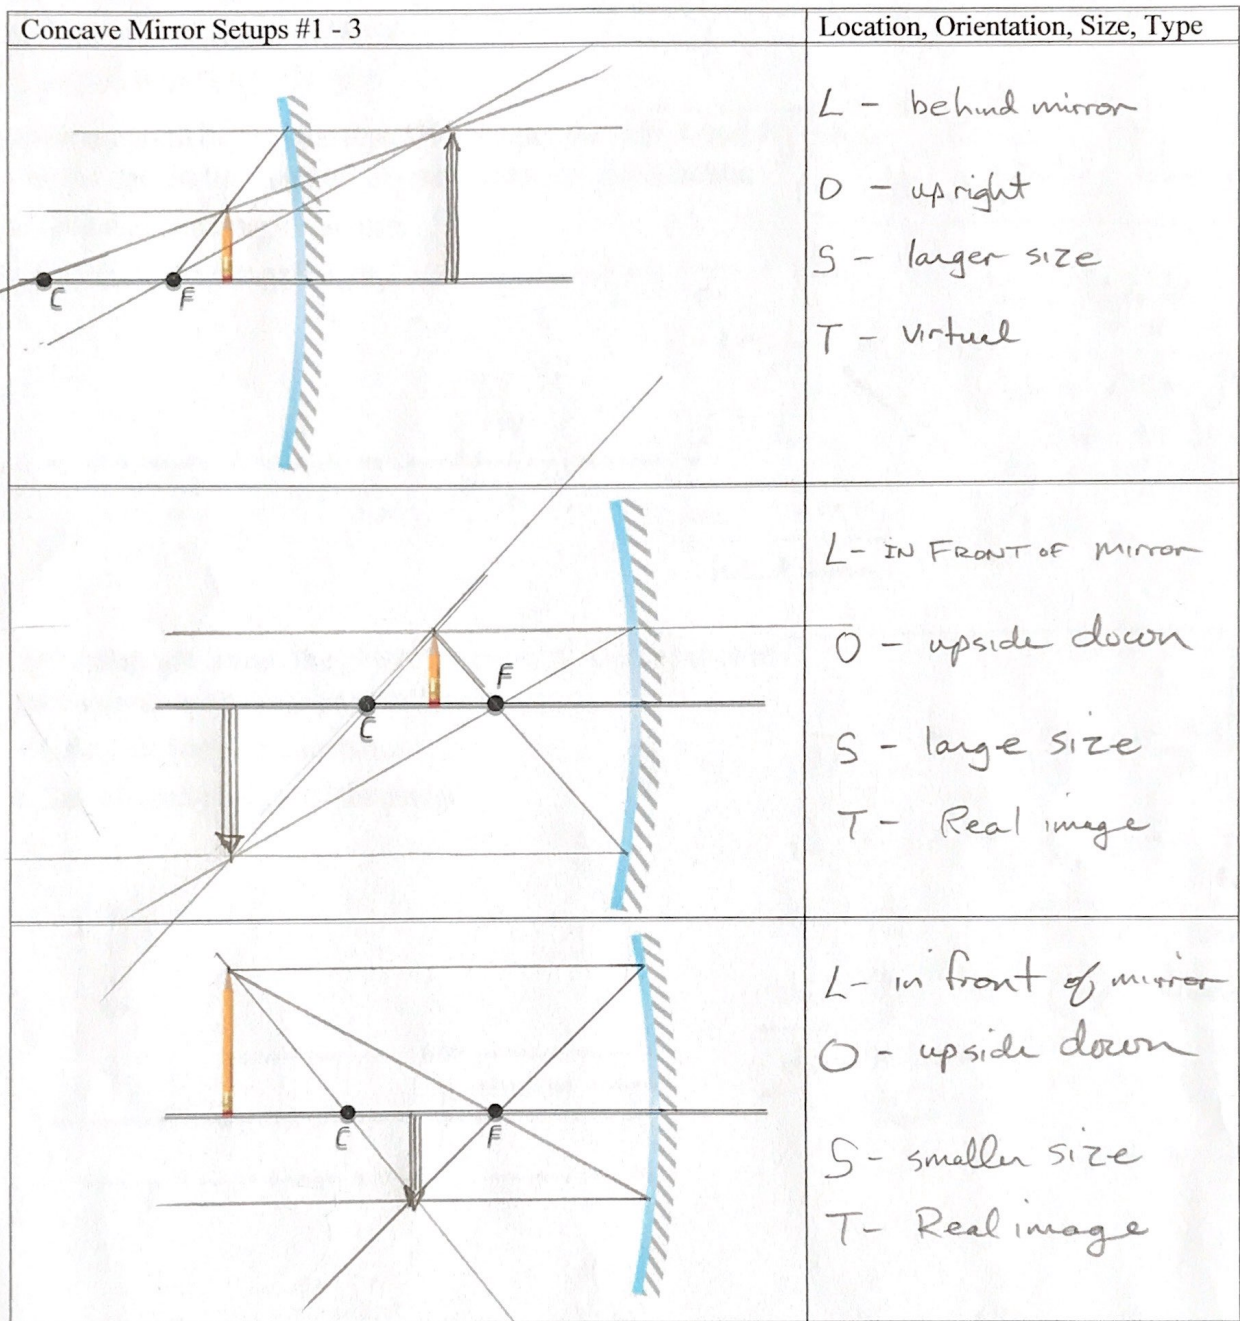 Concave Mirror Setups #1 - 3
Location, Orientation, Size, Type
L - behind mirror
O - upright
S - larger size
T - virtual
C
F
L- IN FRONT OF mirror
O - upside down
S - large size
T - Real image
F
C
L- in front of mirror
O - upside down
S - smaller size
T- Real image
C
F